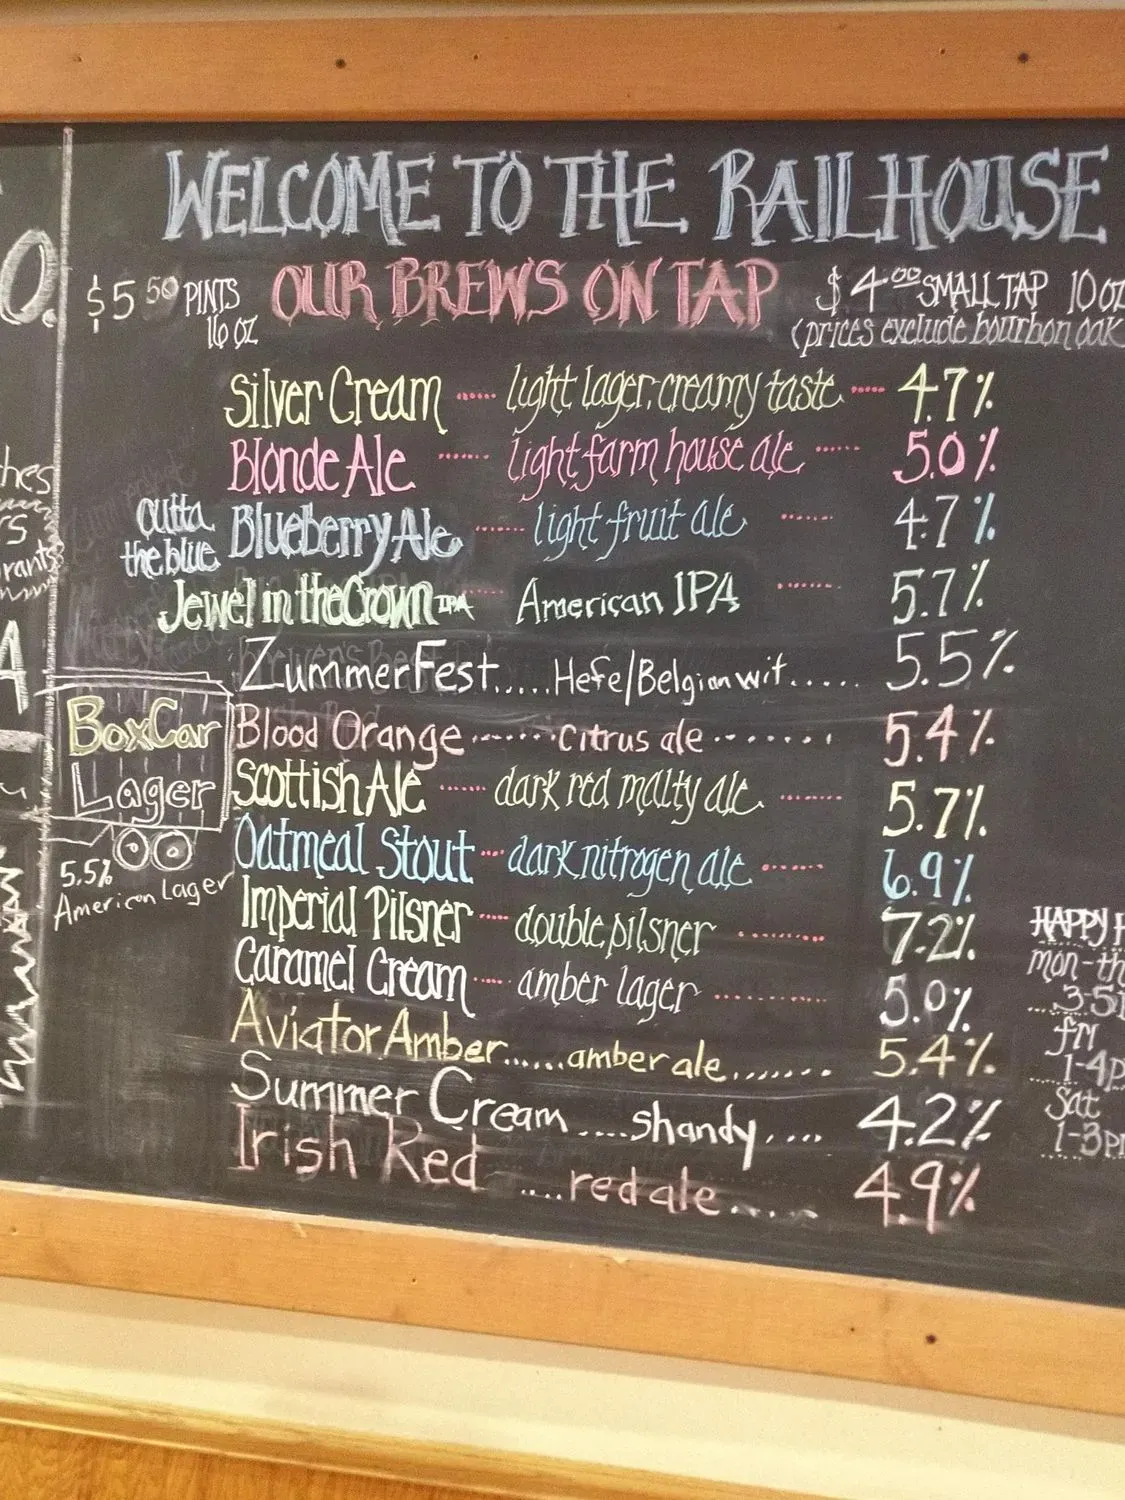 WELCOME TO THE RAILHOUSE
$5.50 PINTS 16 OZ
OUR BREWS ON TAP
$4.00 SMALL TAP 10 OZ
(prices exclude bourbon oak
Silver Cream ...... light lager, creamy taste ...... 4.7%
Blonde Ale ...... light farm house ale ...... 5.0%
outta the blue Blueberry Ale ...... light fruit ale ...... 4.7%
Jewel in the Crown IPA American IPA ...... 5.7%
ZummerFest..... Hefe/Belgian wit...... 5.5%
Blood Orange ........ citrus ale ........ 5.4%
Scottish Ale ...... dark red malty ale ...... 5.7%
Oatmeal Stout ... dark nitrogen ale ...... 6.9%
Imperial Pilsner .... double pilsner ........ 7.2%
Caramel Cream .... amber lager .......... 5.0%
Aviator Amber...... amber ale........ 5.4%
Summer Cream ....shandy.... 4.2%
Irish Red ....red ale..... 4.9%
BoxCar
Lager
5.5%
American Lager
HAPPY H
mon-th
3-5p
fri
1-4p
Sat
1-3pm